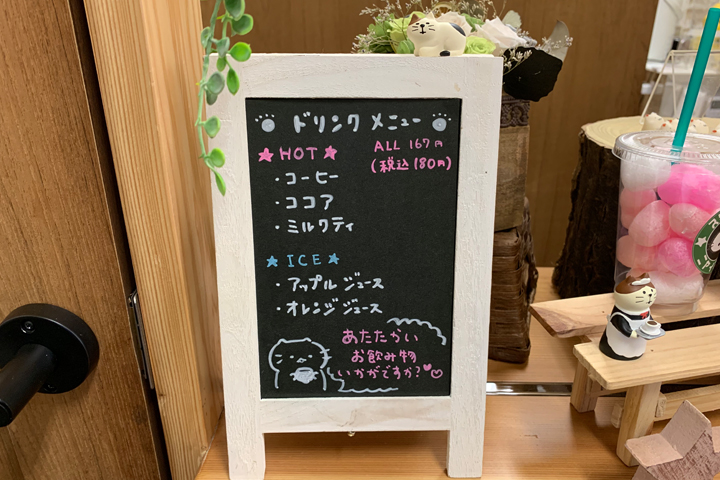 ドリンクメニュー
★HOT★
ALL 167円
(税込180円)
・コーヒー
・ココア
・ミルクティ
★ICE★
・アップルジュース
・オレンジジュース
あたたかい
お飲み物
いかがですか?